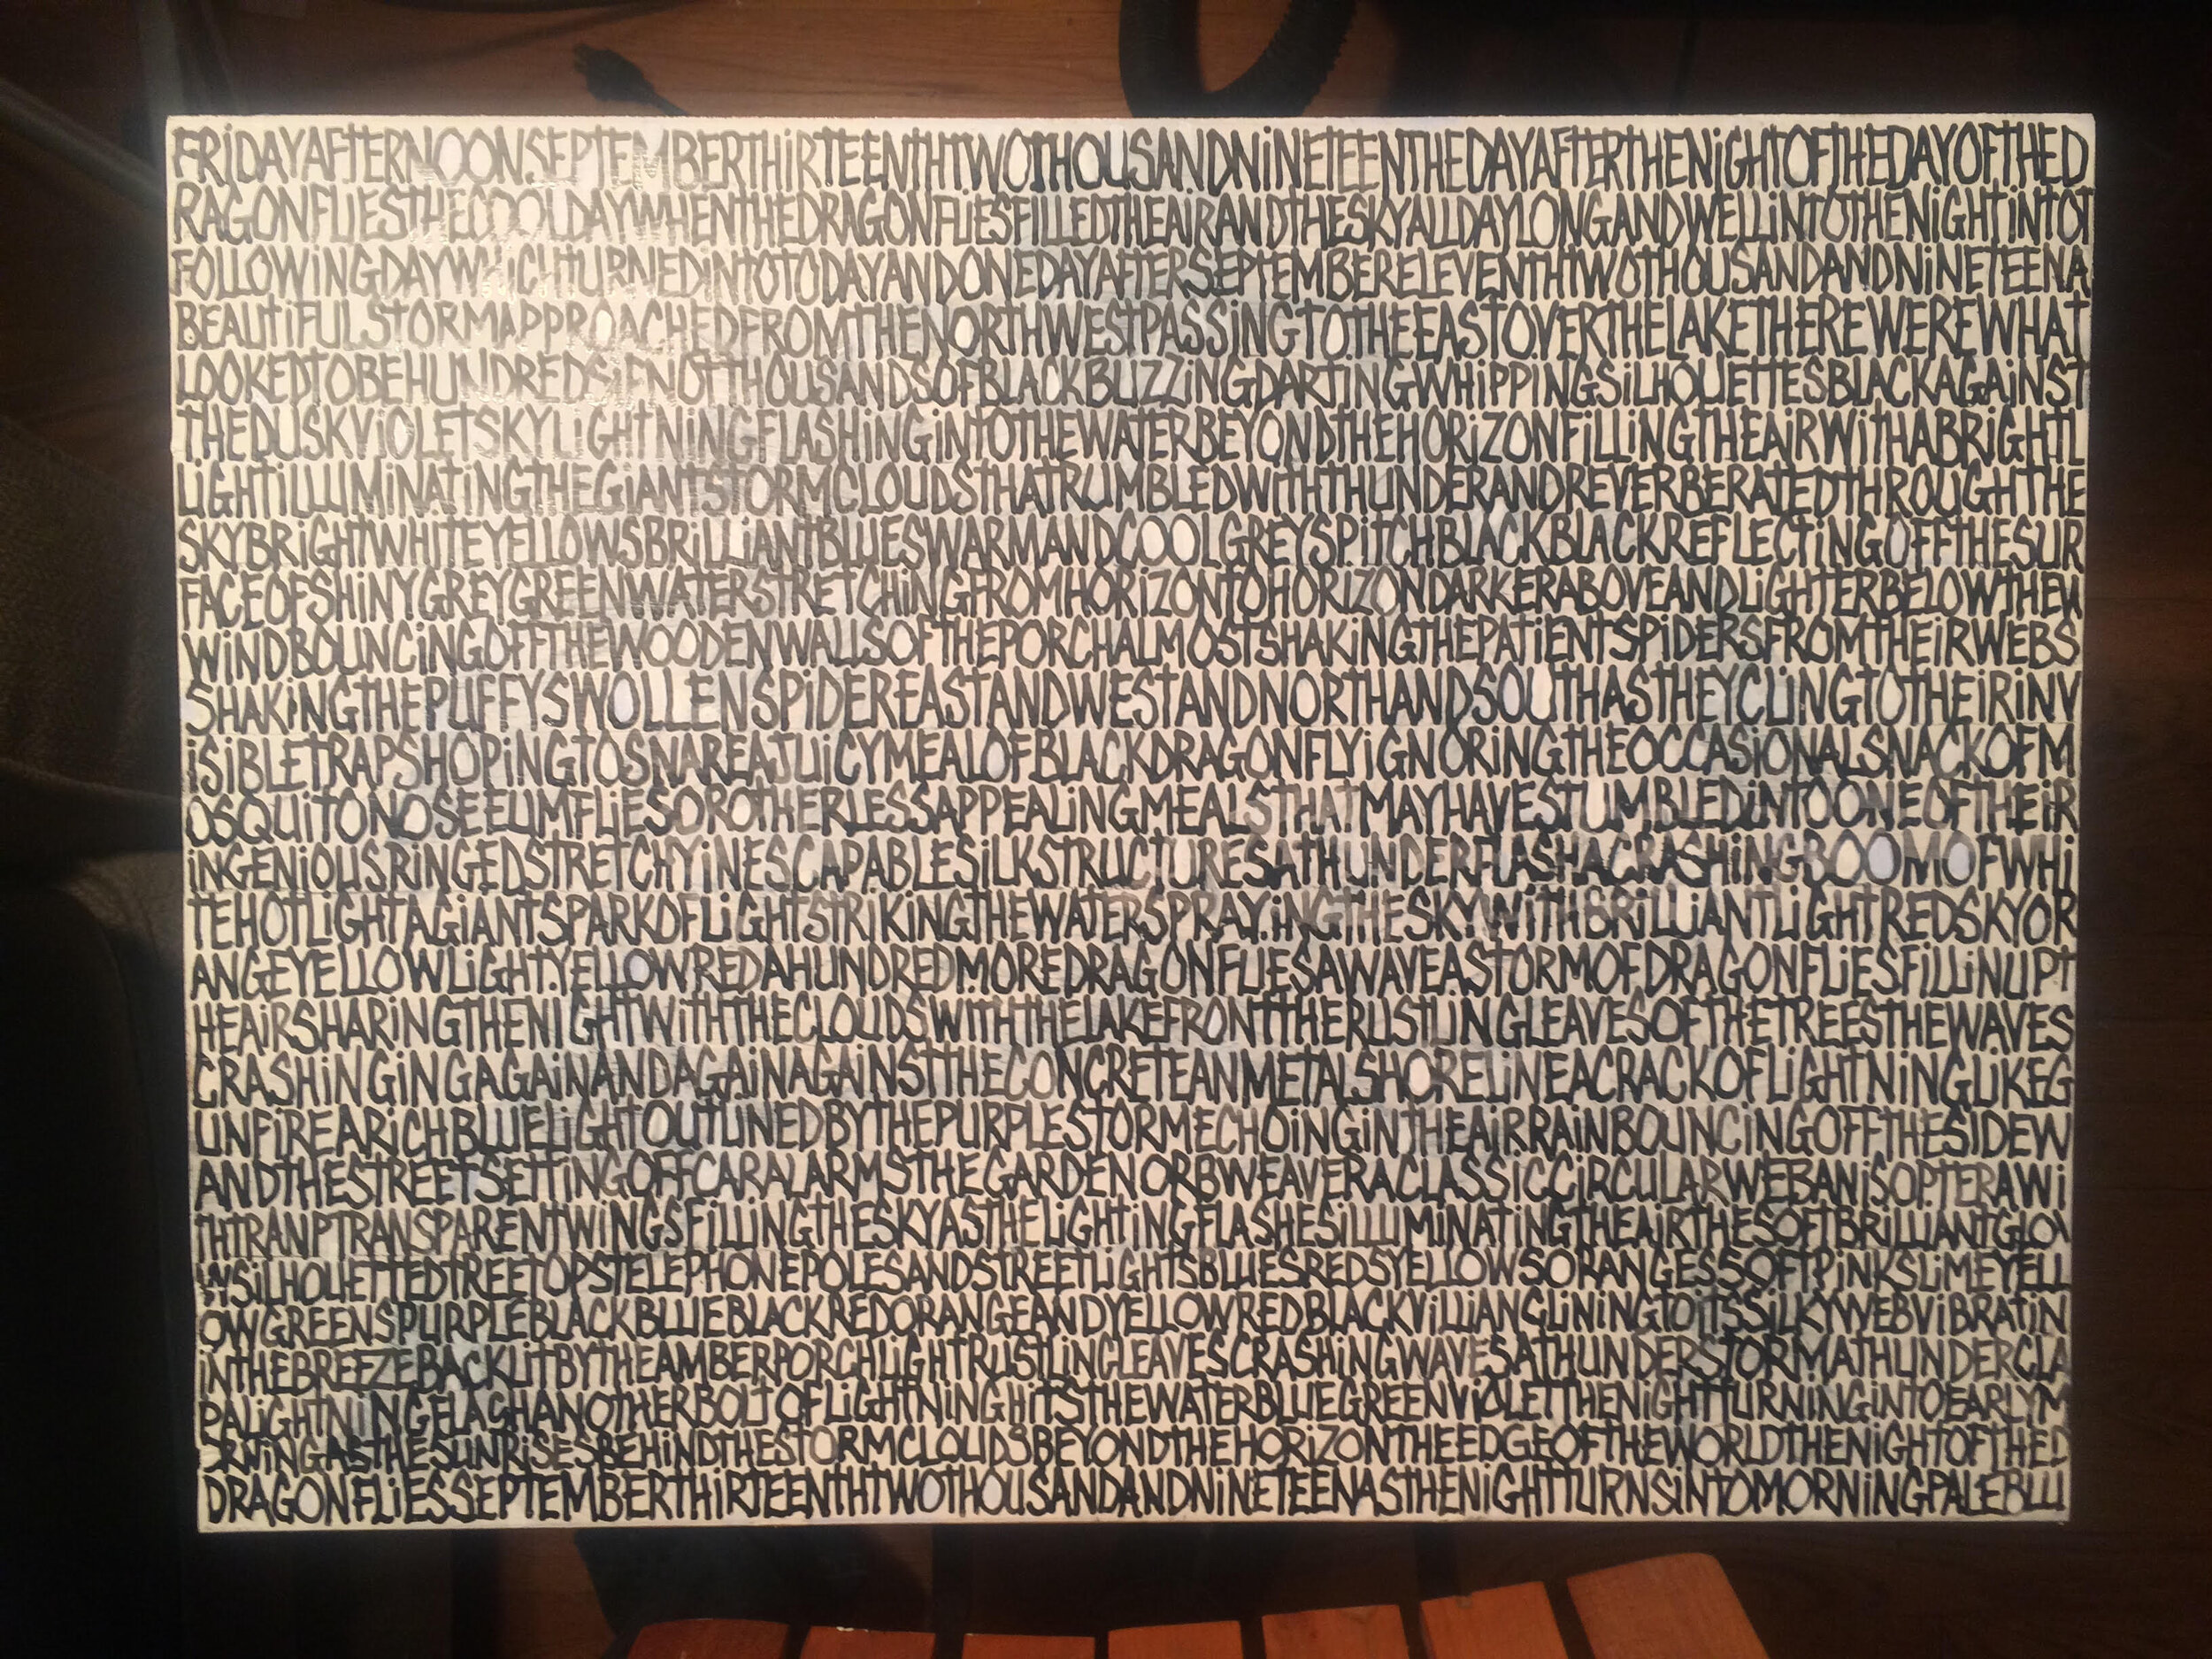 FRiDAYAFTERNOONSEPTEMBERTHiRTEENTHTWOTHOUSANDNiNETEENTHEDAYAFTERTHENiGHTOFTHEDAYOFTHED
RAGONFLiESTHECOOLDAYWHENTHEDRAGONFLiESFILLEDTHEAIRANDTHESKYALLDAYLONGANDWELLiNTOTHENiGHTiNTOT
FOLLOWiNGDAYWHiCHTURNEDINTOTODAYANDONEDAYAFTERSEPTEMBERELEVENTHTWOTHOUSANDANDNiNETEENA
BEAUTiFULSTORMAPPROACHEDFROMTHENORTHWESTPASSiNGTOTHEEASTOVERTHELAKETHEREWEREWHAT
LOOKEDTOBEHUNDREDSiFNOTTHOUSANDSOFBLACKBUZZiNGDARTiNGWHiPPiNGSiLHOUETTESBLACKAGAiNST
THEDUSKViOLETSKYLiGHTNiNGFLASHiNGiNTOTHEWATERBEYONDTHEHORiZONFiLLiNGTHEAiRWiTHABRiGHTL
LiGHTiLLUMiNATiNGTHEGiANTSTORMCLOUDSTHATRUMBLEDWiTHTHUNDERANDREVERBERATEDTHROUGHTHE
SKYBRiGHTWHiTEYELLOWSBRiLLiANTBLUESWARMANDCOOLGREYSPiTCHBLACKBLACKREFLECTiNGOFFTHESUR
FACEOFSHiNYGREYGREENWATERSTRETCHiNGFROMHORiZONTOHORiZONDARKERABOVEANDLiGHTERBELOWTHEW
WiNDBOUNCiNGOFFTHEWOODENWALLSOFTHEPORCHALMOSTSHAKiNGTHEPATiENTSPiDERSFROMTHEiRWEBS
SHAKiNGTHEPUFFYSWOLLENSPiDEREASTANDWESTANDNORTHANDSOUTHASTHEYCLiNGTOTHEiRiNV
iSiBLETRAPSHOPiNGTOSNAREAJUiCYMEALOFBLACKDRAGONFLYiGNORiNGTHEOCCASiONALSNACKOFM
OSQUiTONOSEEUMFLiESOROTHERLESSAPPEALiNGMEALSTHATMAYHAVESTUMBLEDiNTOONEOFTHEiR
iNGENiOUSRiNGEDSTRETCHYiNESCAPABLESiLKSTRUCTURESATHUNDERFLASHACRASHiNGBOOMOFWHi
TEHOTLiGHTAGiANTSPARKOFLiGHTSTRiKiNGTHEWATERSPRAYiNGTHESKYWiTHBRiLLiANTLiGHTREDSKYOR
ANGEYELLOWLiGHTYELLOWREDAHUNDREDMOREDRAGONFLiESAWAVEASTORMOFDRAGONFLiESFiLLiNUPT
HEAiRSHARiNGTHENiGHTWiTHTHECLOUDSWiTHTHELAKEFRONTTHERUSTLiNGLEAVESOFTHETREESTHEWAVES
CRASHiNGiNGAGAiNANDAGAiNAGAiNSTTHECONCRETEANMETALSHORELiNEACRACKOFLiGHTNiNGLiKEG
UNFiREARiCHBLUELiGHTOUTLiNEDBYTHEPURPLESTORMECHOiNGiNTHEAiRRAiNBOUNCiNGOFFTHESiDEW
ANDTHESTREETSETTiNGOFFCARALARMSTHEGARDENORBWEAVERACLASSiCCiRCULARWEBANiSOPTERAWi
THTRANPTRANSPARENTWiNGSFiLLiNGTHESKYASTHELiGHTiNGFLASHESiLLUMiNATiNGTHEAiRTHESOFTBRiLLiANTGLO
WSiLHOUETTEDTREETOPSTELEPHONEPOLESANDSTREETLiGHTSBLUESREDSYELLOWSORANGESSOFTPiNKSLiMEYELL
OWGREENSPURPLEBLACKBLUEBLACKREDORANGEANDYELLOWREDBLACKViLLiANCLiNiNGTOiTSSiLKYWEBViBRATiN
iNTHEBREEZEBACKLiTBYTHEAMBERPORCHLiGHTRUSTLiNGLEAVESCRASHiNGWAVESATHUNDERSTORMATHUNDERCLA
PALiGHTNiNGFLACHANOTHERBOLTOFLiGHTNiNGHiTSTHEWATERBLUEGREENViOLETTHENiGHTTURNiNGiNTOEARLYM
ORNiNGASTHESUNRiSESBEHiNDTHESTORMCLOUDSBEYONDTHEHORiZONTHEEDGEOFTHEWORLDTHENiGHTOFTHED
DRAGONFLiESSEPTEMBERTHiRTEENTHTWOTHOUSANDANDNiNETEENASTHENiGHTTURNSiNTOMORNiNGPALEBLU